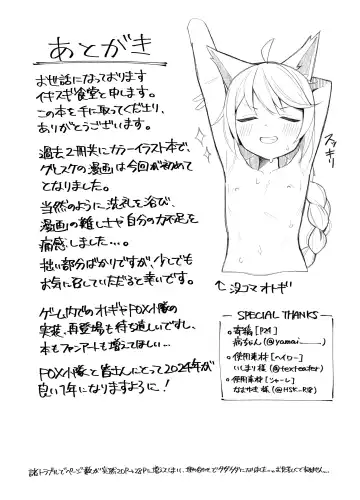 あとがき
お世話になっております
イキスギ食堂と申します。
この本を手に取ってくださり、
ありがとうございます。
過去2冊共にカラーイラスト本で、
グレスケの漫画は今回が初めて
となりました。
当然のように洗礼を浴び、
漫画の難しさや自分の力不足を
痛感しました…。
拙い部分ばかりですが、少しでも
お気に召していただけると幸いです。
ゲーム内でのオトギやFOX小隊の
実装、再登場も待ち遠しいですし、
本もファンアートも増えてほしい…
FOX小隊と皆さんにとって2024年が
良い1年になりますように!
スッキリ
↑没コマ オトギ
SPECIAL THANKS
○寄稿[P21]
病ちゃん(@yamai____)
○使用素材[ヘイロー]
いしまり様(@texteater)
○使用素材[シャーレ]
なまやき様(@HSK_R8)